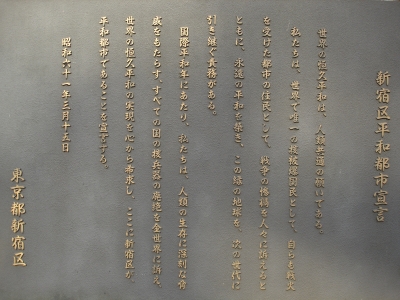 新宿区平和都市宣言
世界の恒久平和は、人類共通の願いである。
私たちは、世界で唯一の核被爆国民として、自らも戦火
を受けた都市の住民として、戦争の惨禍を人々に訴えると
ともに、永遠の平和を築き、この緑の地球を、次の世代に
引き継ぐ責務がある。
国際平和年にあたり、私たちは、人類の生存に深刻な脅
威をもたらす、すべての国の核兵器の廃絶を全世界に訴え、
世界の恒久平和の実現を心から希求し、ここに新宿区が、
平和都市であることを宣言する。
昭和六十一年三月十五日
東京都新宿区